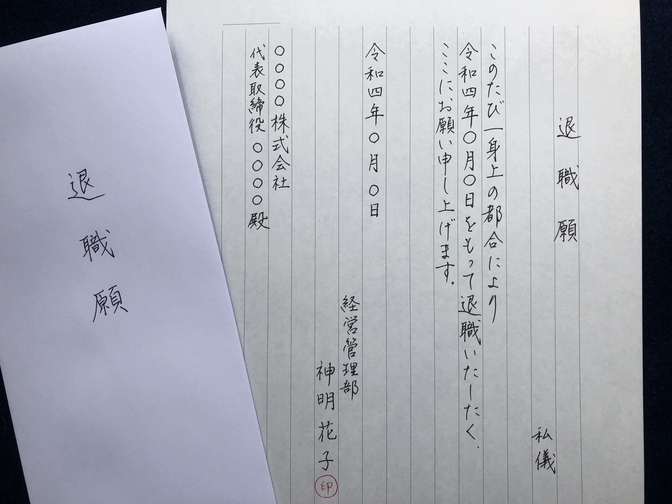 退職願
私儀
このたび一身上の都合により
令和四年〇月〇日をもって退職いたしたく、
ここにお願い申し上げます。
令和四年〇月〇日
経営管理部
神明花子 印
〇〇〇〇株式会社
代表取締役 〇〇〇〇殿
退職願